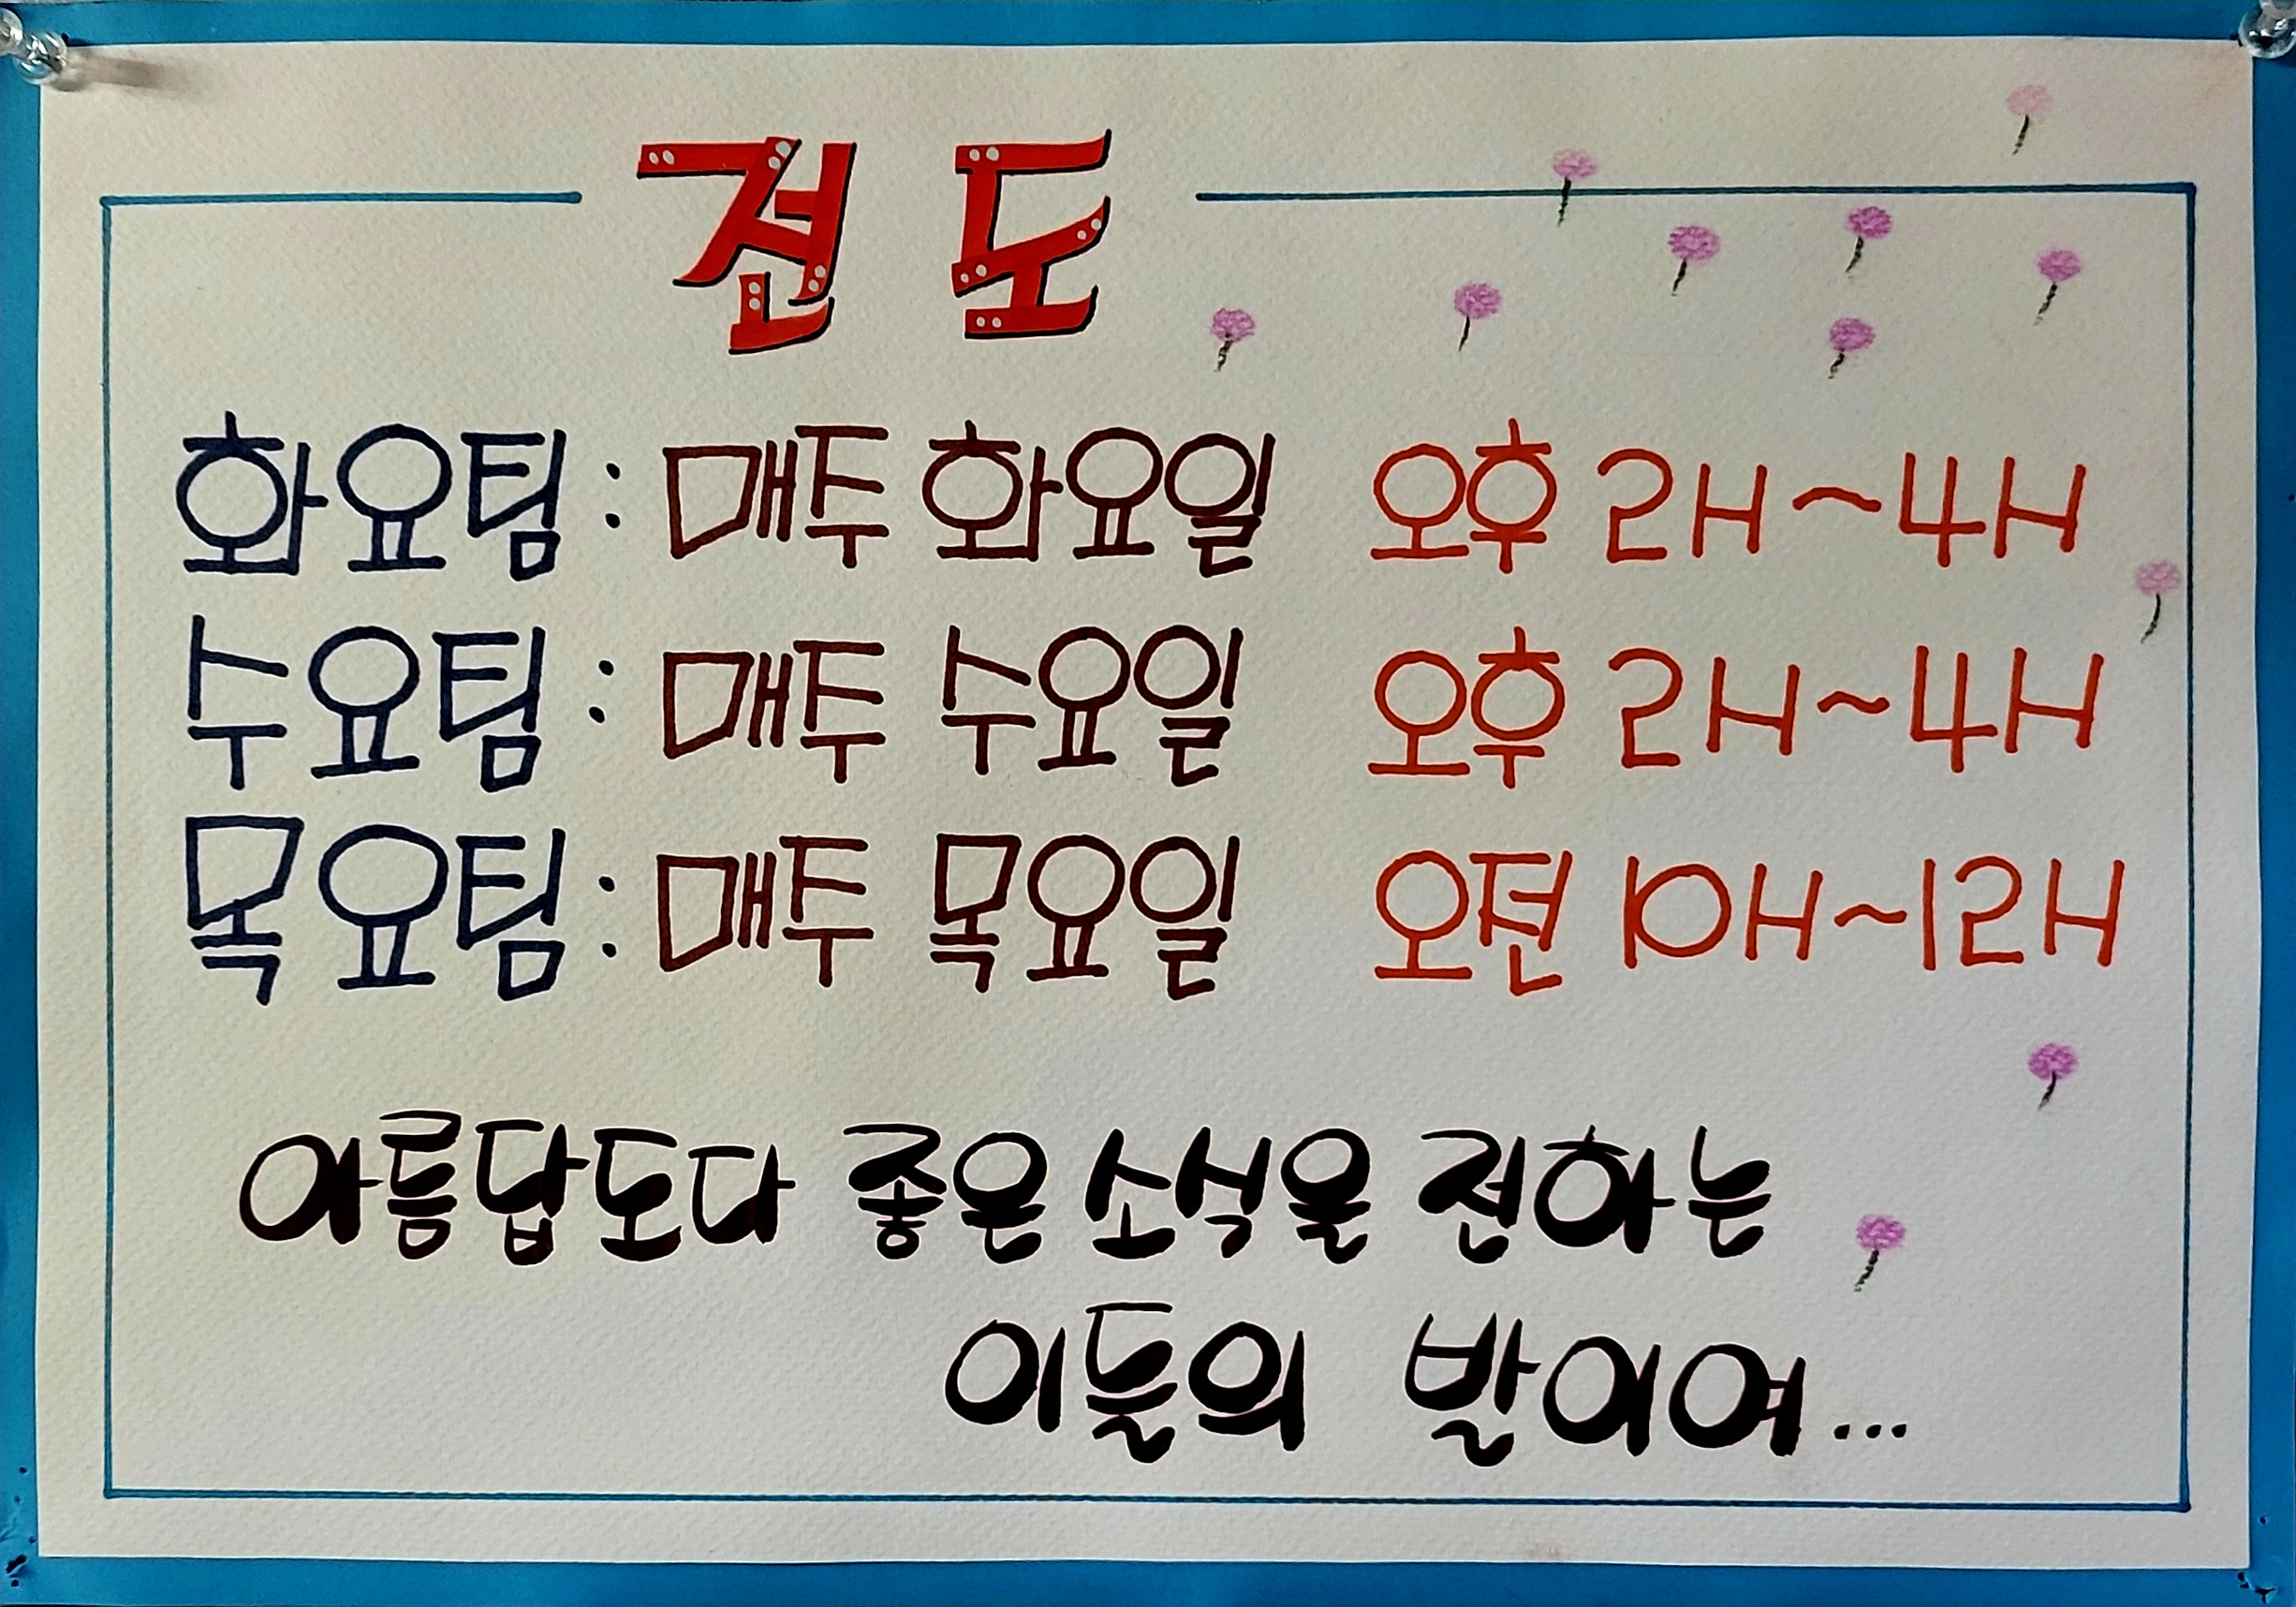 전도
화요팀 : 매주 화요일 오후 2시~4시
수요팀 : 매주 수요일 오후 2시~4시
목요팀 : 매주 목요일 오전 10시~12시
아름답도다 좋은 소식을 전하는
이들의 발이여...